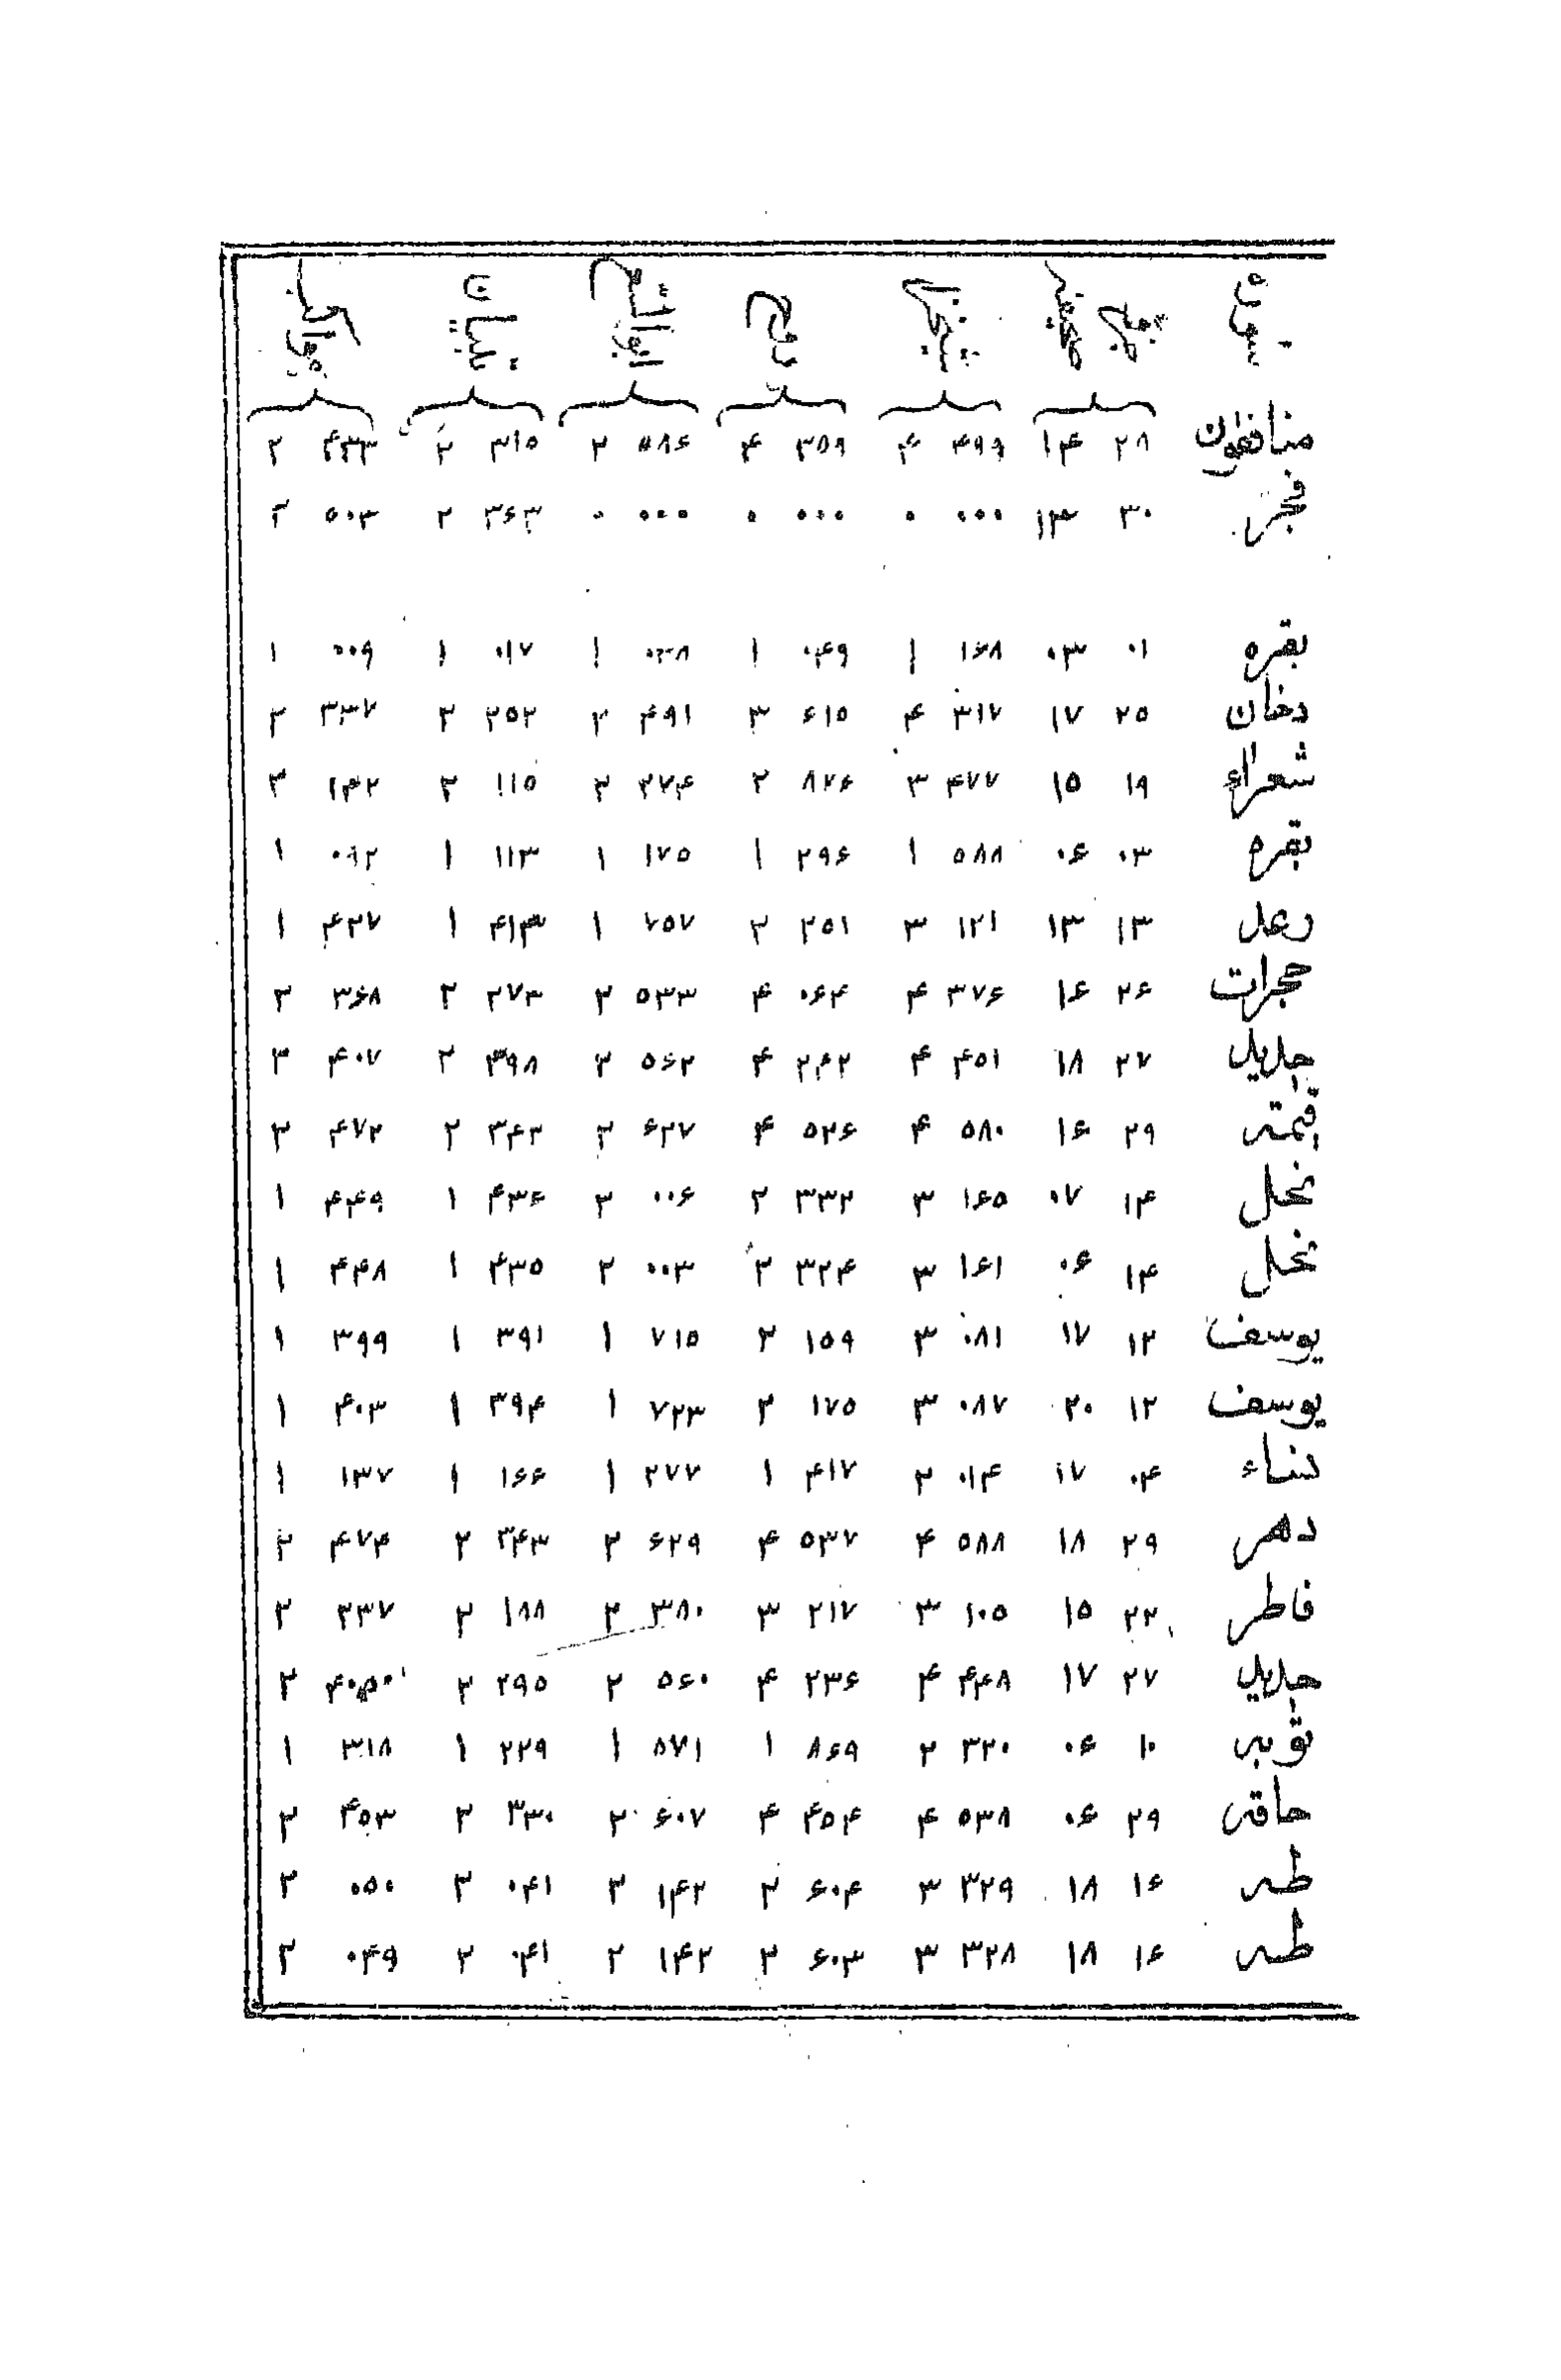 سوره جزء صفحه روح ابوالفتوح تبیان
منافقون ۲۸ ۱۴ ۴۹۹ ۴ ۳۵۹ ۴ ۵۸۶ ۲ ۳۱۵ ۲ ۴۳۳ ۲
فجر ۳۰ ۱۳ ۰۰۰ ۰ ۰۰۰ ۰ ۰۰۰ ۰ ۳۶۳ ۲ ۵۰۳ ۲
بقره ۰۱ ۰۳ ۱۶۸ ۱ ۰۴۹ ۱ ۰۳۸ ۱ ۰۱۷ ۱ ۰۰۹ ۱
دخان ۲۵ ۱۷ ۳۱۷ ۴ ۶۱۵ ۳ ۴۹۱ ۲ ۲۵۲ ۲ ۳۳۷ ۲
شعراء ۱۹ ۱۵ ۴۷۷ ۳ ۸۷۶ ۲ ۲۷۴ ۲ ۱۱۵ ۲ ۱۴۲ ۲
بقره ۰۳ ۰۶ ۵۸۸ ۱ ۲۹۶ ۱ ۱۷۵ ۱ ۱۱۳ ۱ ۰۹۲ ۱
رعد ۱۳ ۱۳ ۱۲۱ ۳ ۲۵۱ ۲ ۷۵۷ ۱ ۴۱۳ ۱ ۴۲۷ ۱
حجرات ۲۶ ۱۶ ۳۷۶ ۴ ۰۶۴ ۴ ۵۳۳ ۲ ۲۷۳ ۲ ۳۶۸ ۲
حدید ۲۷ ۱۸ ۴۵۱ ۴ ۲۴۲ ۴ ۵۶۲ ۲ ۳۹۸ ۲ ۴۰۷ ۲
قیمته ۲۹ ۱۶ ۵۸۰ ۴ ۵۲۶ ۴ ۶۲۷ ۲ ۳۴۲ ۲ ۴۷۲ ۲
نحل ۱۴ ۰۷ ۱۶۵ ۳ ۳۳۲ ۲ ۰۰۶ ۲ ۴۳۶ ۱ ۴۴۹ ۱
نحل ۱۴ ۰۶ ۱۶۱ ۳ ۳۲۴ ۲ ۰۰۳ ۲ ۴۳۵ ۱ ۴۴۸ ۱
یوسف ۱۲ ۱۷ ۰۸۱ ۳ ۱۵۹ ۲ ۷۱۵ ۱ ۳۹۱ ۱ ۳۹۹ ۱
یوسف ۱۲ ۲۰ ۰۸۷ ۳ ۱۷۵ ۲ ۷۲۳ ۱ ۳۹۴ ۱ ۴۰۳ ۱
نساء ۰۴ ۱۷ ۰۱۴ ۲ ۴۱۷ ۱ ۲۷۷ ۱ ۱۶۶ ۱ ۱۳۷ ۱
دهر ۲۹ ۱۸ ۵۸۸ ۴ ۵۳۷ ۴ ۶۲۹ ۲ ۳۴۳ ۲ ۴۷۴ ۲
فاطر ۲۲ ۱۵ ۱۰۵ ۳ ۲۱۷ ۳ ۳۸۰ ۲ ۱۸۸ ۲ ۲۳۷ ۲
حدید ۲۷ ۱۷ ۴۴۸ ۴ ۲۳۶ ۴ ۵۶۰ ۲ ۲۹۵ ۲ ۲
توبه ۱۰ ۰۶ ۳۲۰ ۲ ۸۶۹ ۱ ۵۷۱ ۱ ۲۲۹ ۱ ۳۱۸ ۱
حاقه ۲۹ ۰۶ ۵۳۸ ۴ ۴۵۴ ۴ ۶۰۷ ۲ ۳۳۰ ۲ ۴۵۳ ۲
طه ۱۶ ۱۸ ۳۲۹ ۳ ۶۰۴ ۲ ۱۴۲ ۲ ۰۴۱ ۲ ۰۵۰ ۲
طه ۱۶ ۱۸ ۳۲۸ ۳ ۶۰۳ ۲ ۱۴۲ ۲ ۰۴۱ ۲ ۰۴۹ ۲